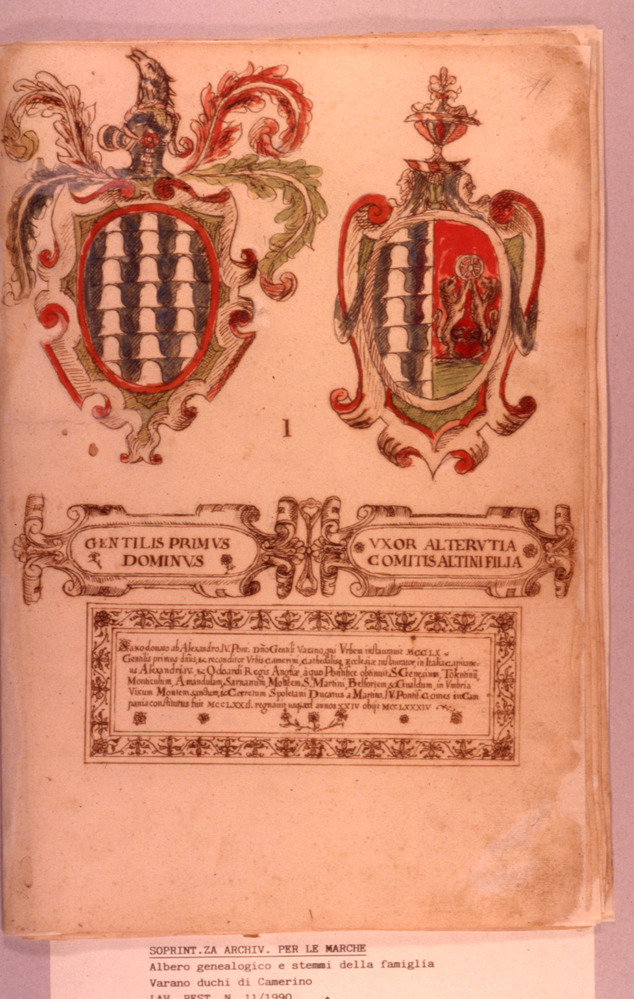 1
GENTILIS PRIMVS
DOMINVS
VXOR ALTERVTIA
COMITIS ALTINI FILIA
Saxo donato ab Alexandro. IV. Pont. Dño Gentili Varano, qui Vrbem instauravit MCCLX
Gentilis primus dñus, &c. reconditor Vrbis Camerini, Cathedralis Ecclesiæ instaurator, in Italia
us Alexandri IV. &c Odoardi Regis Angliæ, a quo Pontifice obtinuit, S. Genesium, Tolentinũ,
Monteculum, Amandulam, Sarnanum, Montem, S. Martini, Belfortem, & Gualdum, in Vmbria
Visum Montem sanctum, & Cerretum Spoletani Ducatus a Martino IV Pontf. Comes in Cam
pania constitutus fuit MCCLXXXII. regnavit annos XXIV obijt MCCLXXXIV
SOPRINT.ZA ARCHIV. PER LE MARCHE
Albero genealogico e stemmi della famiglia
Varano duchi di Camerino
LAV. REST. N. 11/1990